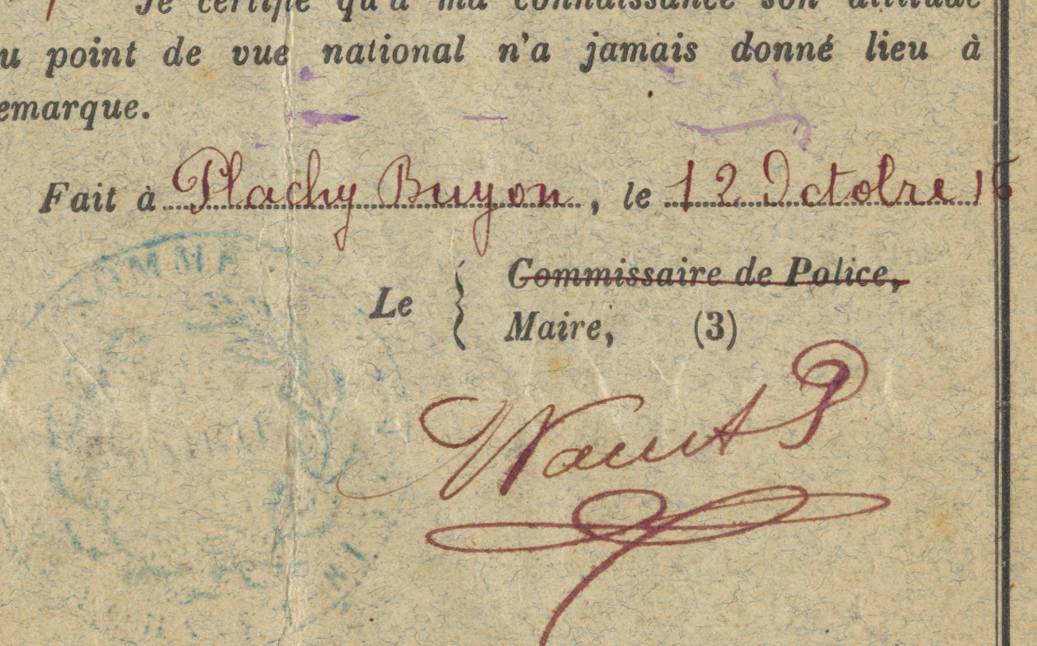 Je certifie qu'à ma connaissance son attitude
u point de vue national n'a jamais donné lieu à
emarque.
Fait à Plachy Buyon, le 12 Octobre 16
Le { Commissaire de Police,
Maire, (3)
SOMME